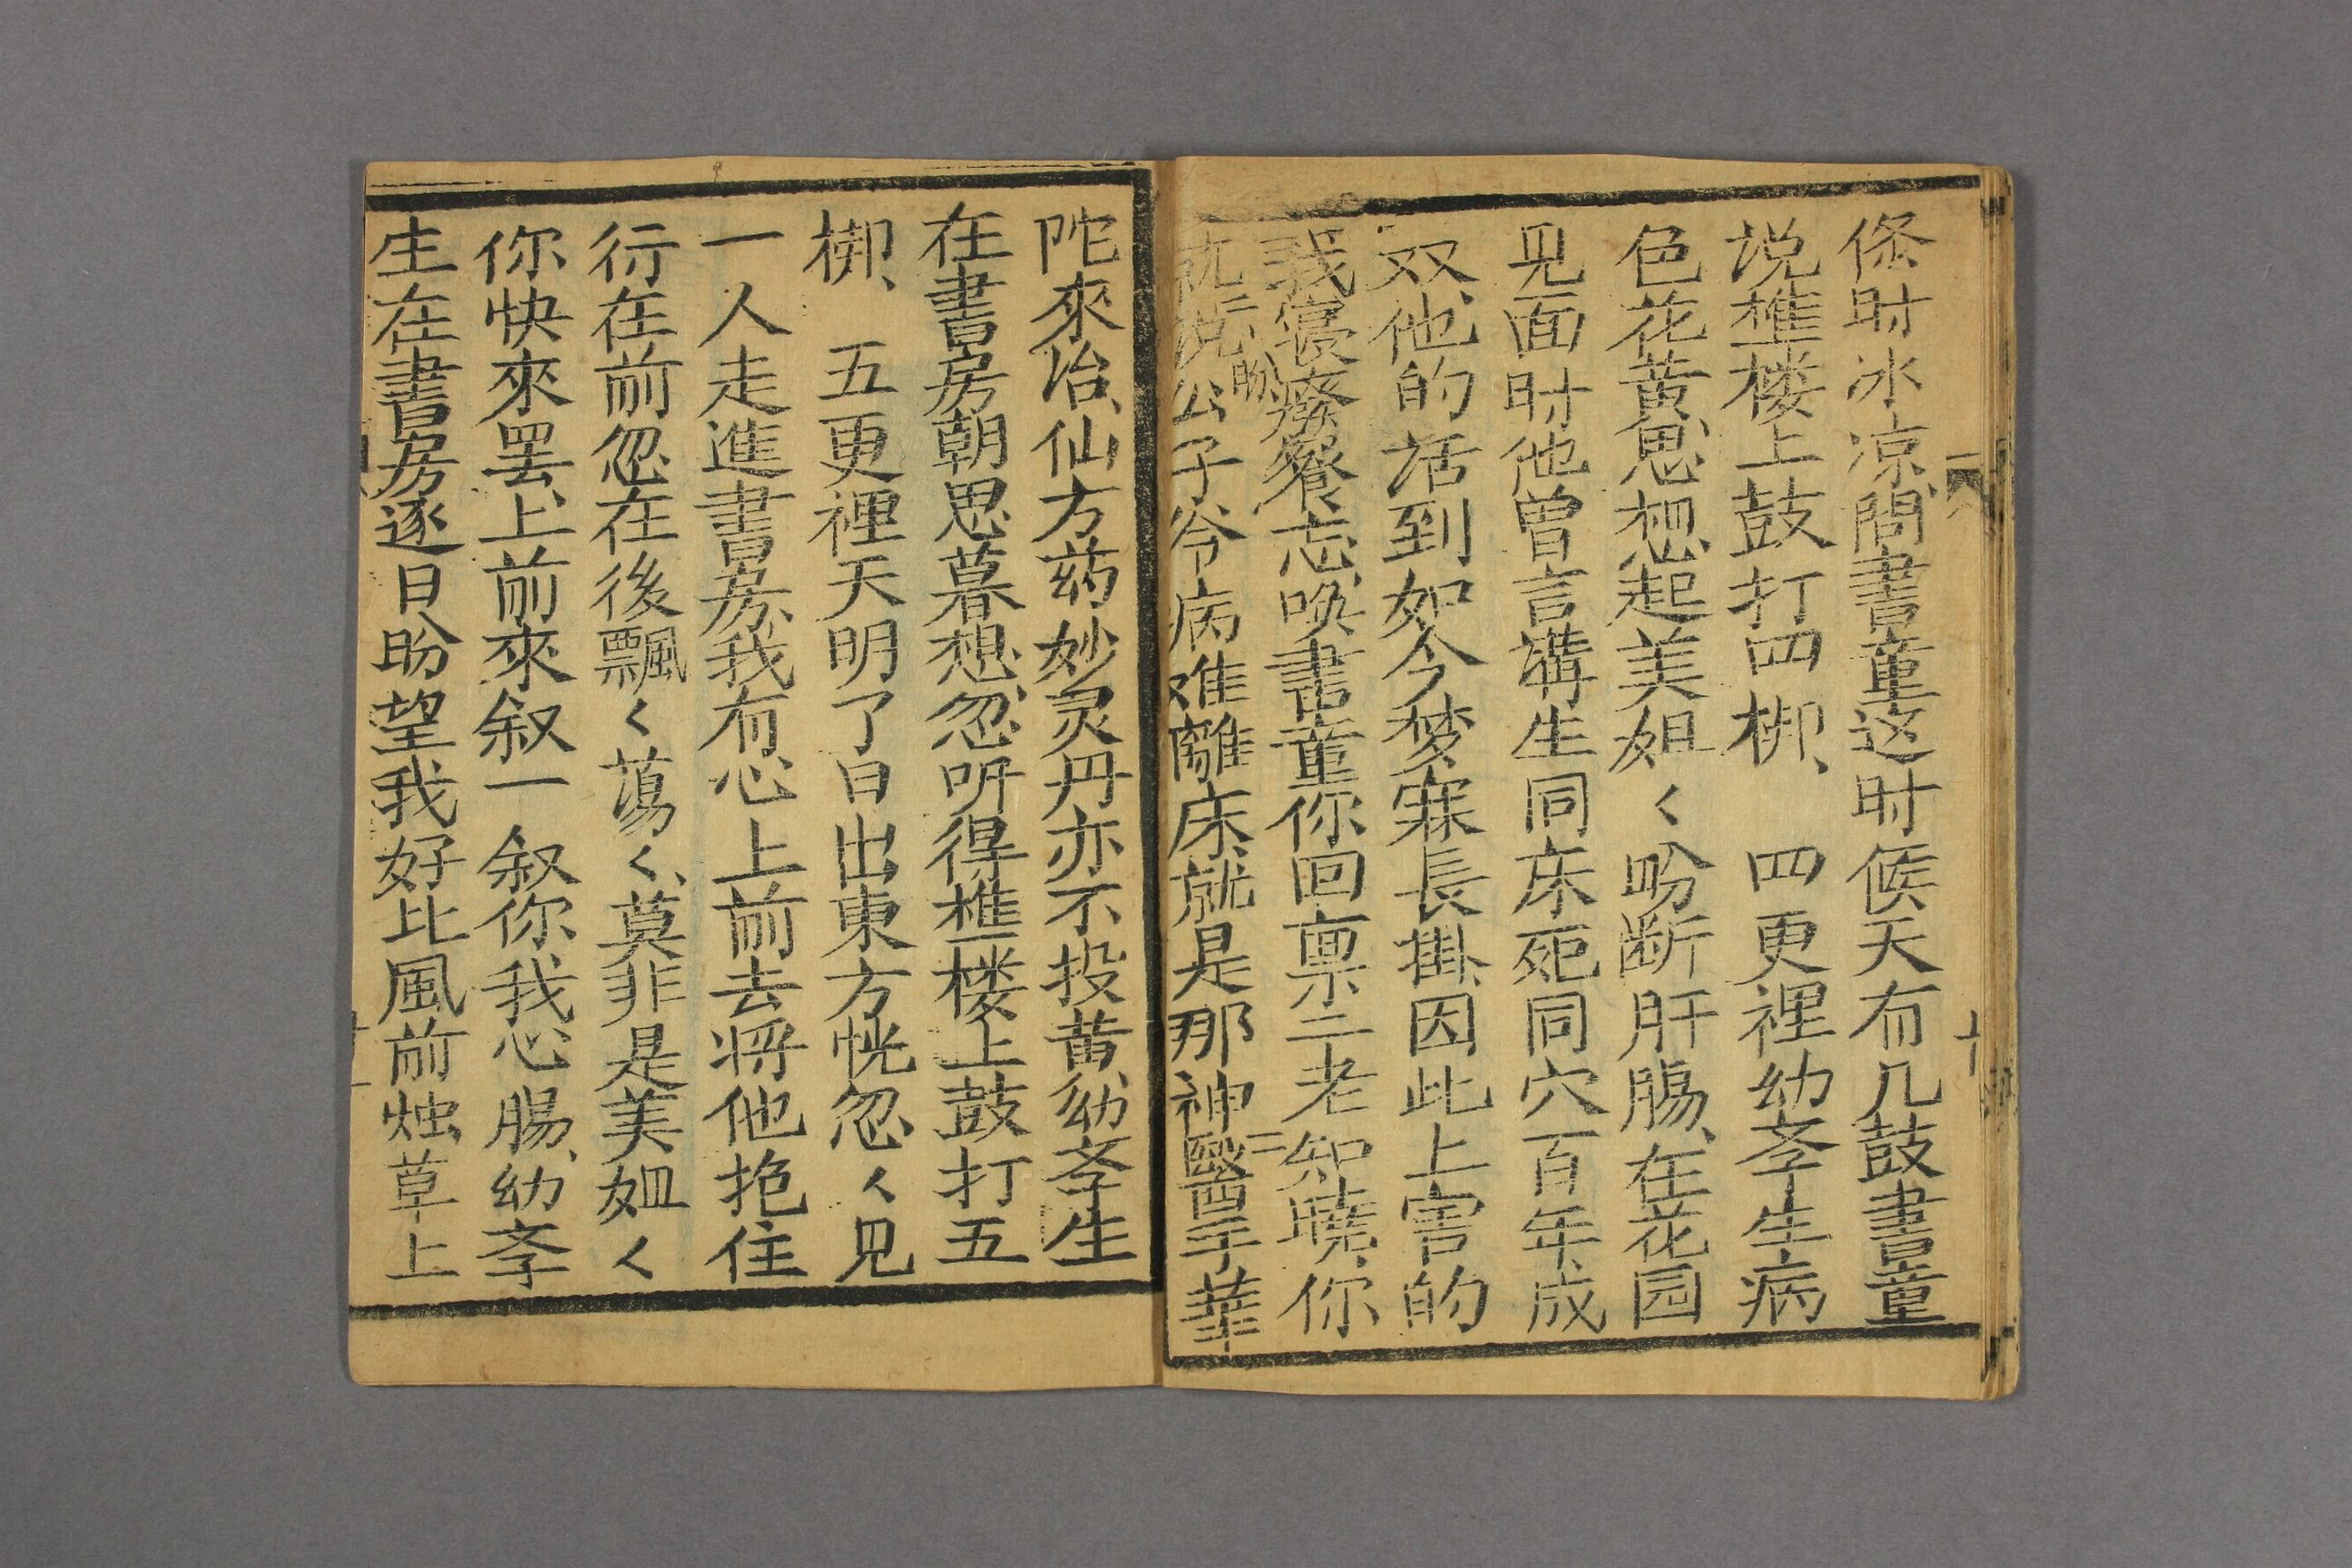 倏时冰凉、問書童这时候天有几鼓書童
说樵楼上鼓打四梆、　四更裡幼斈生病
色花黄、思想起美姐〱盼断肝腸、在花园
见面时他曽言講生同床死同穴百年成
双、他的话到如今梦寐長掛、因此上害的
我寝廢餐忘、唤書童你回禀二老知曉、你
就说公子爷病难離床、就是那神醫手華
陀來治、仙方药妙灵丹亦不投黄、幼斈生
在書房朝思暮想、忽听得樵楼上鼓打五
梆、　五更裡天明了日出東方恍忽〱见
一人走進書房、我有心上前去将他抱住
行在前忽在後飄〱蕩〱、莫非是美姐〱
你快來罢、上前來叙一叙你我心腸、幼斈
生在書房逐日盼望我好比風前烛草上
十